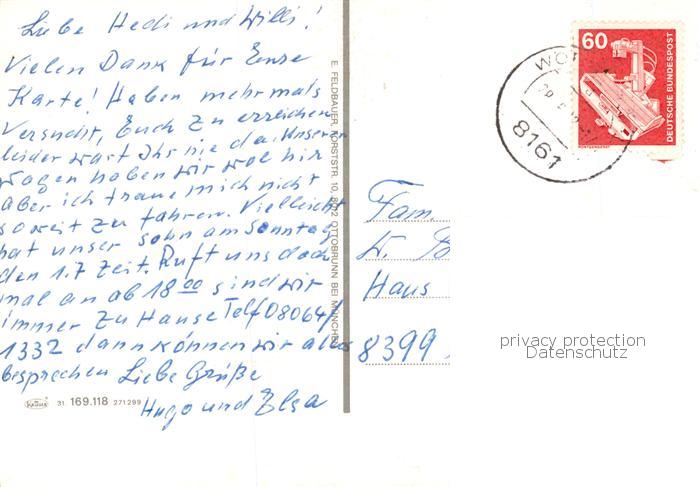 Liebe Hedi und Willi!
Vielen Dank für Eure
Karte! Haben mehrmals
Versucht, Euch zu erreichen
leider wart Ihr nie da. Unseren
Wagen haben wir wol hir
aber ich traue mich nicht
soweit zu fahren. Vielleicht
hat unser Sohn am Sonntag
den 1.7 Zeit. Ruft uns doch
mal an ab 18 00 sind wir
immer zu Hause Telf 08064/
1332 dann können wir alles
besprechen Liebe Grüße
Hugo und Elsa
31. 169.118 271299
E. FELDBAUER, FORSTSTR. 10, 8012 OTTOBRUNN BEI MÜNCHEN
60
DEUTSCHE BUNDESPOST
8161
Fam.
Haus
8399
privacy protection
Datenschutz